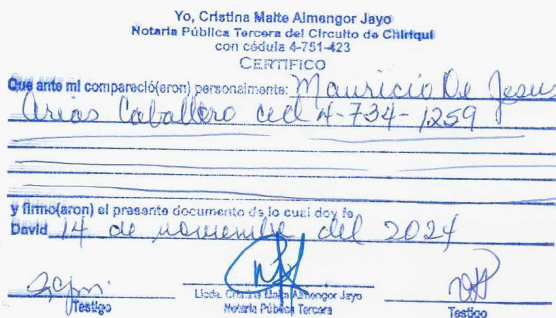 Yo, Cristina Maite Almengor Jayo
Notaria Pública Tercera del Circuito de Chiriquí
con cédula 4-751-423
CERTIFICO
Que ante mi compareció(eron) personalmente: Mauricio De Jesus
Arias Caballero ced 4-734-1259
y firmo(aron) el presente documento de lo cual doy fe
David 14 de noviembre del 2024
Testigo
Licda. Cristina Maite Almengor Jayo
Notaria Pública Tercera
Testigo